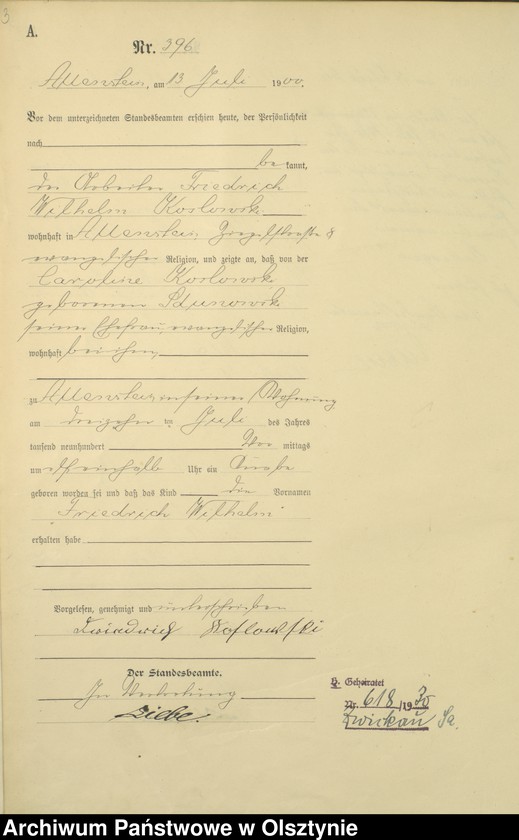 3
A.
Nr. 396
Allenstein, am 13 Juli 1900.
Vor dem unterzeichneten Standesbeamten erschien heute, der Persönlichkeit
nach
be kannt,
der Arbeiter Friedrich
Wilhelm Koslowski
wohnhaft in Allenstein Ziegelstraße 8
evangelischer Religion, und zeigte an, daß von der
Caroline Koslowski
geborenen
seiner Ehefrau, evangelischer Religion,
wohnhaft bei ihm,
zu Allenstein in seiner Wohnung
am dreizehn ten Juli des Jahres
tausend neunhundert Vor mittags
um elf einhalb Uhr ein Knabe
geboren worden sei und daß das Kind die Vornamen
"Friedrich Wilhelm"
erhalten habe
Vorgelesen, genehmigt und unterschrieben
Friedrich Koslowski
Der Standesbeamte.
In Vertretung
Geheiratet
Nr. 618/1930
Zwickau Sa.
Archiwum Państwowe w Olsztynie